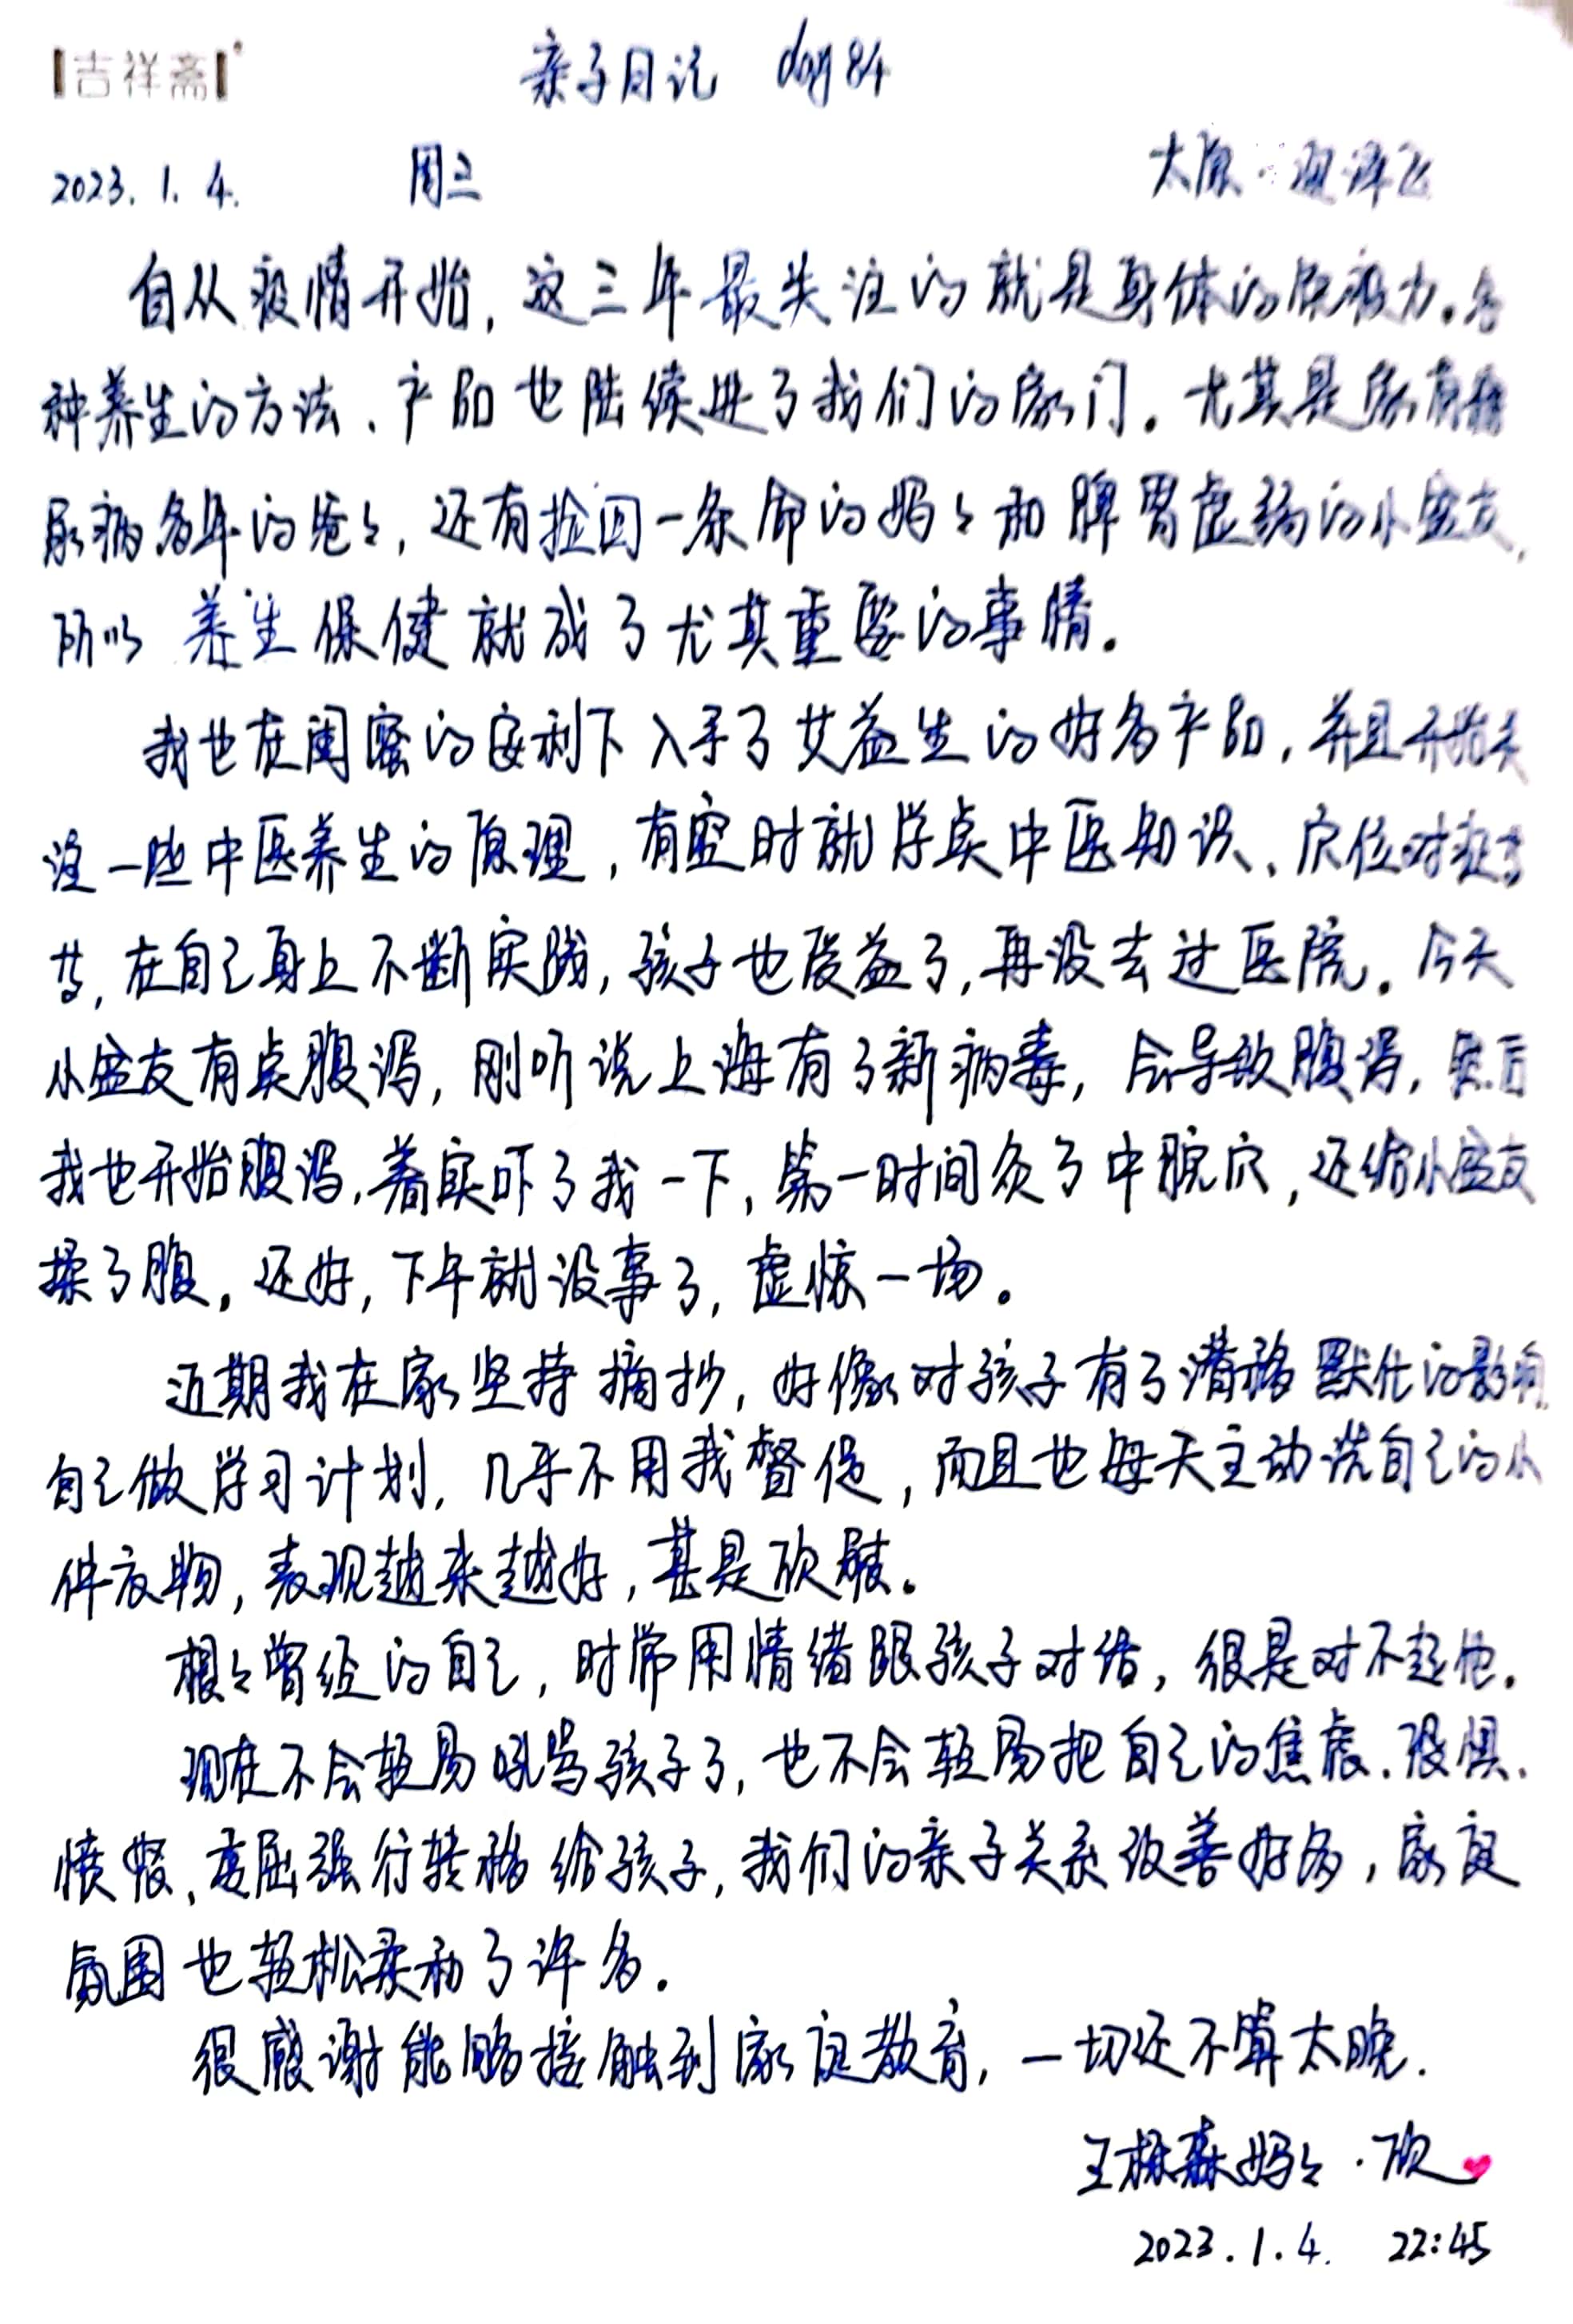 吉祥斋
亲子日记 day 84
2023.1.4. 周三 太原
自从疫情开始，这三年最关注的就是身体的免疫力。各
种养生的方法、产品也陆续进了我们的家门。尤其是家有糖
尿病多年的爸々，还有捡回一条命的妈々和脾胃虚弱的小盆友，
所以养生保健就成了尤其重要的事情。
我也在闺蜜的安利下入手了艾益生的好多产品，并且开始关
注一些中医养生的原理，有空时就学点中医知识、穴位对症
等，在自己身上不断实践，孩子也受益了，再没去过医院。今天
小盆友有点腹泻，刚听说上海有了新病毒，会导致腹泻，然后
我也开始腹泻，着实吓了我一下，第一时间灸了中脘穴，还给小盆友
揉了腹。还好，下午就没事了，虚惊一场。
近期我在家坚持摘抄，好像对孩子有了潜移默化的影响
自己做学习计划，几乎不用我督促，而且也每天主动洗自己的小
件衣物，表现越来越好，甚是欣慰。
想々曾经的自己，时常用情绪跟孩子对话，很是对不起他。
现在不会轻易吼骂孩子了，也不会轻易把自己的焦虑、恐惧、
愤怒、委屈强行转移给孩子，我们的亲子关系改善好多，家庭
氛围也轻松柔和了许多。
很感谢能够接触到家庭教育，一切还不算太晚.
王林森妈々·欣
2023.1.4. 22:45